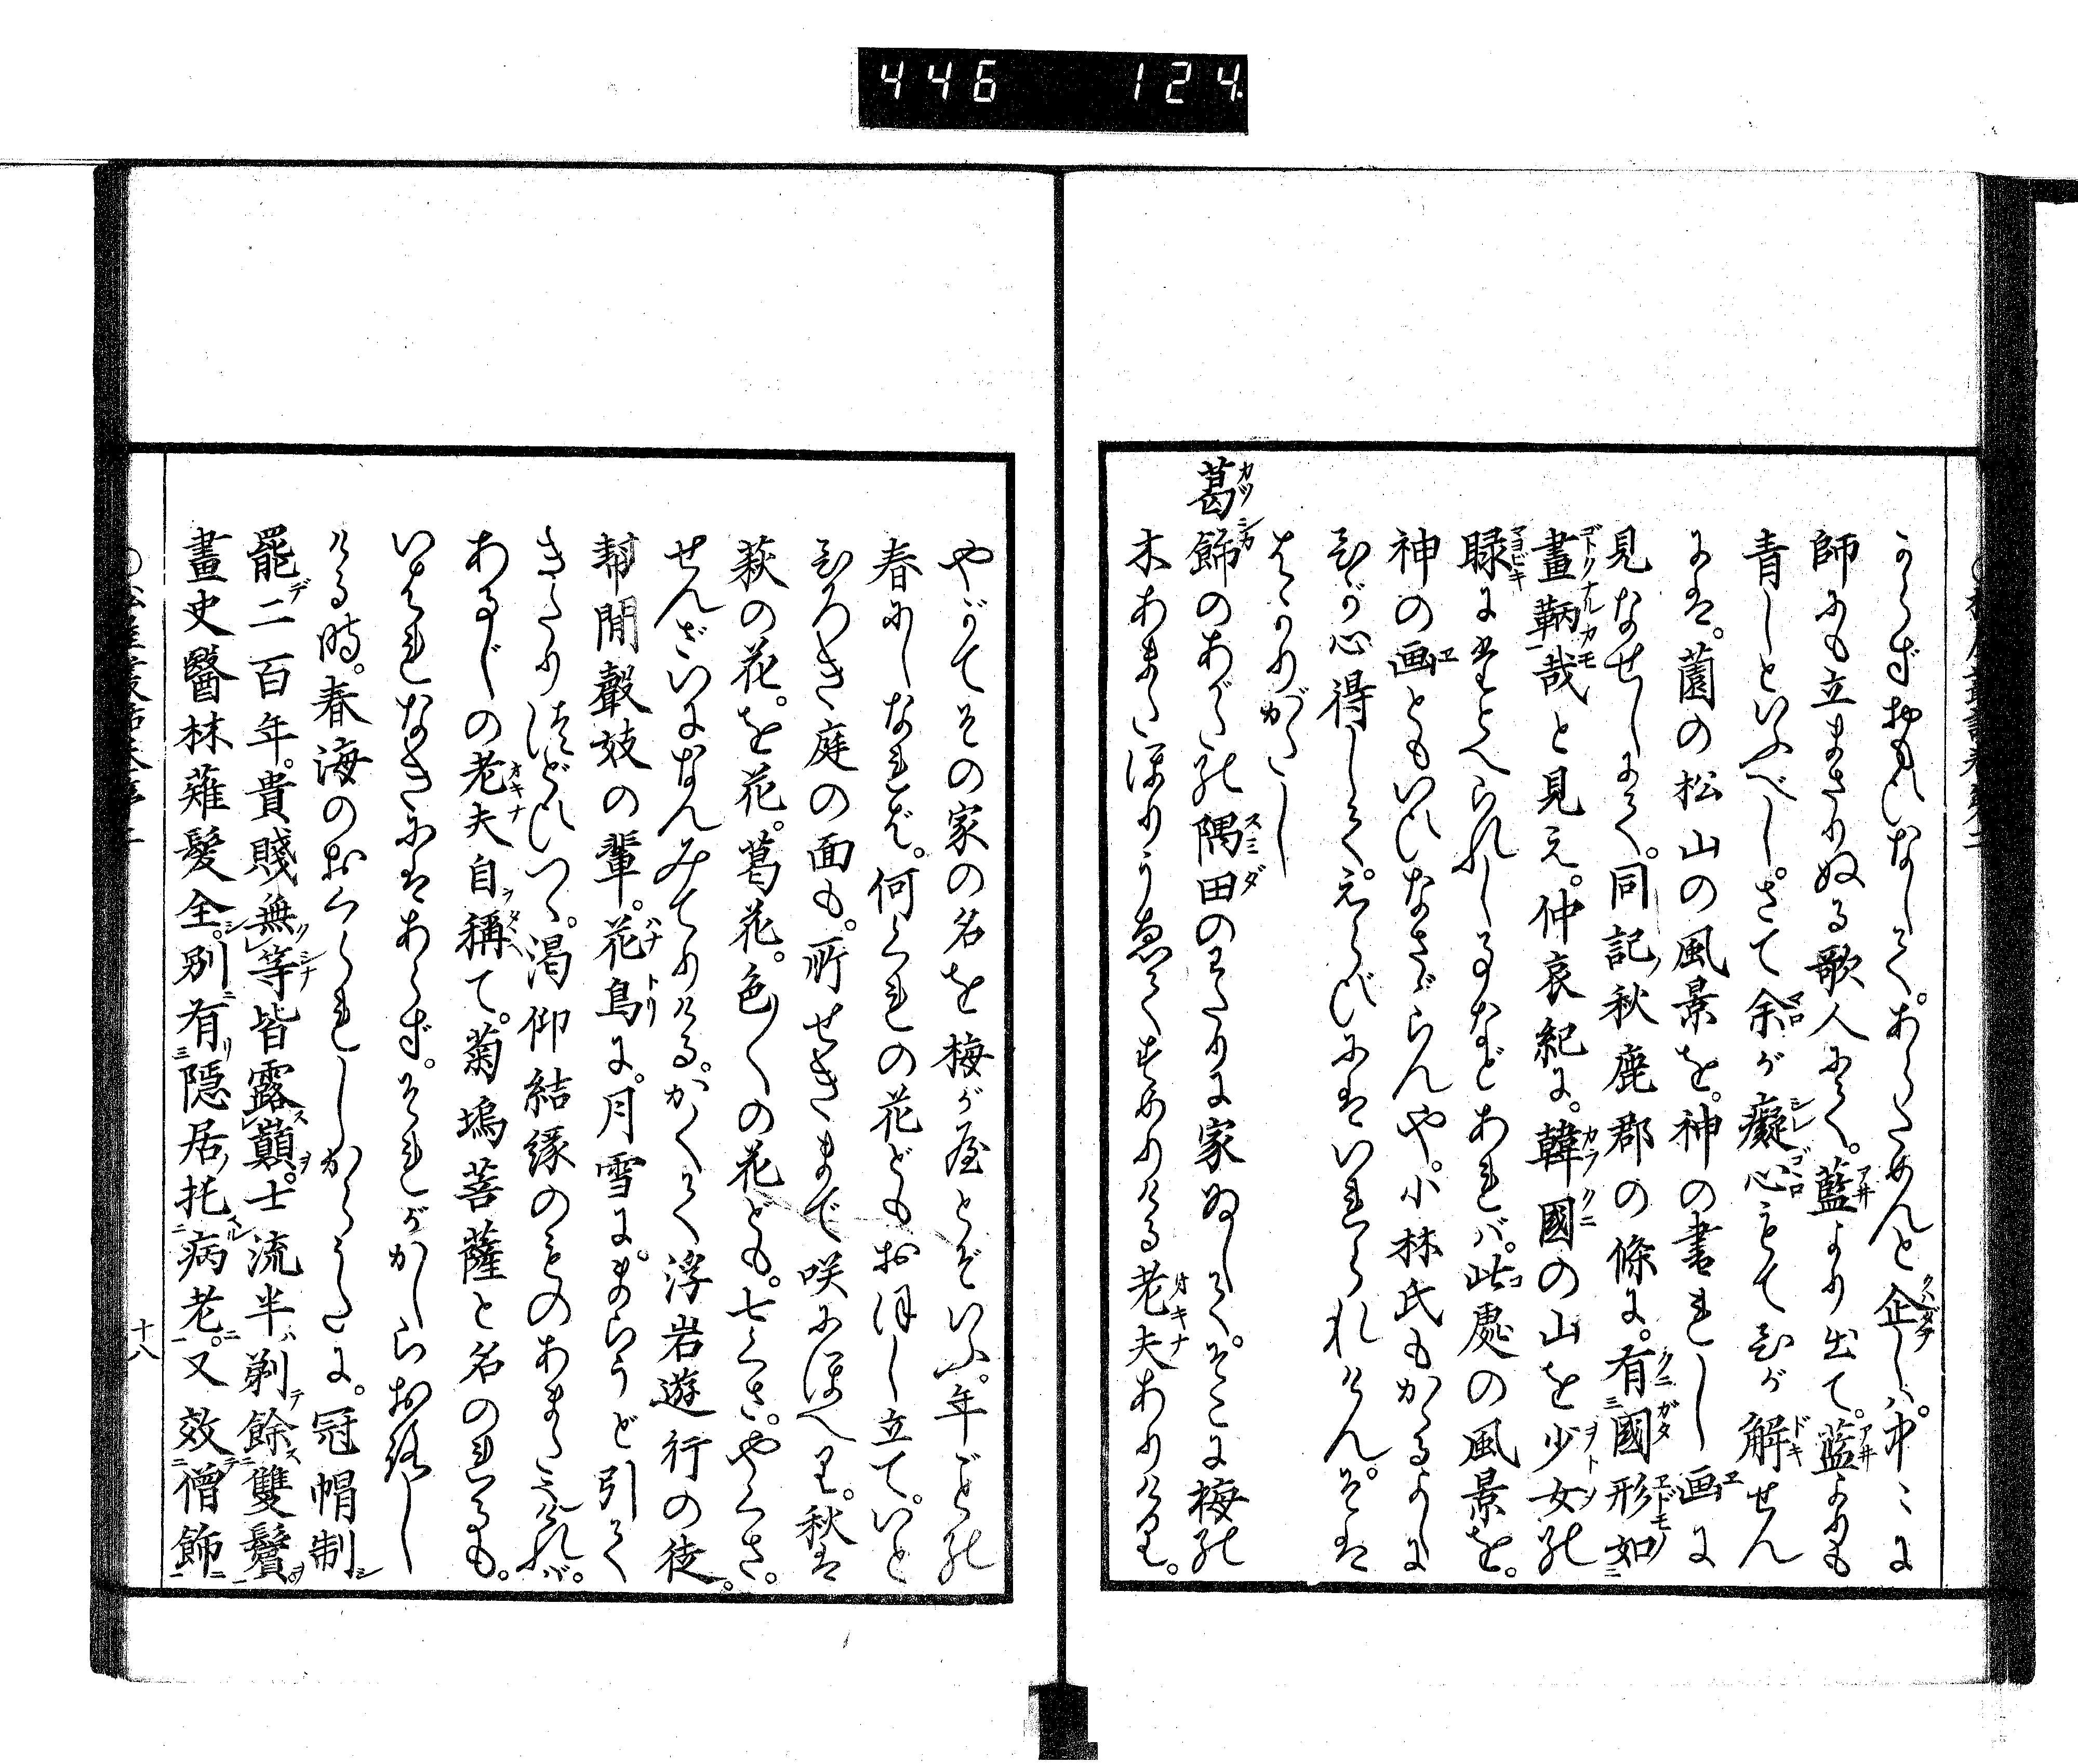 446 124
からずおもひなしてあらためんと企しハ。中〻に
師にも立まさりぬる歌人にて。藍より出て。藍よりも
青しといふべし。さて余が癡心もてひが解せん
には。薗の松山の風景を。神の書れし画に
見なせしにて。同記秋鹿郡の條に。有國形如
畫鞆哉と見え。仲哀紀に。韓國の山を少女の
睩にたとへられしるなどあれバ。此處の風景を。
神の画ともいひなさざらんや。小林氏もかゝるよしに
ひが心得して。えらびにはいれられけん。そは
はかりがたし
葛飾のあがた隅田のわたりに家ゐして。そこに梅の
木あまたほりうゑてすめりける老夫ありけり。
やがてその家の名を梅が屋とぞいふ。年ごとの
春にしなれば。何くれの花どもおほし立て。いと
ひろき庭の面も。所せきまで咲にほへり。秋は
萩の花。を花。葛花。色〳〵の花ども。七くさ。やくさ。
せんざいになんみてりける。かくて浮岩遊行の徒。
幇間聲妓の輩。花鳥に。月雪に。まらうど引て
きたりつどひつゝ。渇仰結縁のものあまたなれバ。
あるじの老夫自稱て。菊塢菩薩と名のれるも。
いはれなきにはあらず。それがかしらおろし
ける時。春海のおくられしからうたに。冠帽制
罷二百年。貴賤無等皆露巓。士流半剃餘雙鬢
畫史醫林薙髮全。別有隱居托病老。又效僧飾
十八